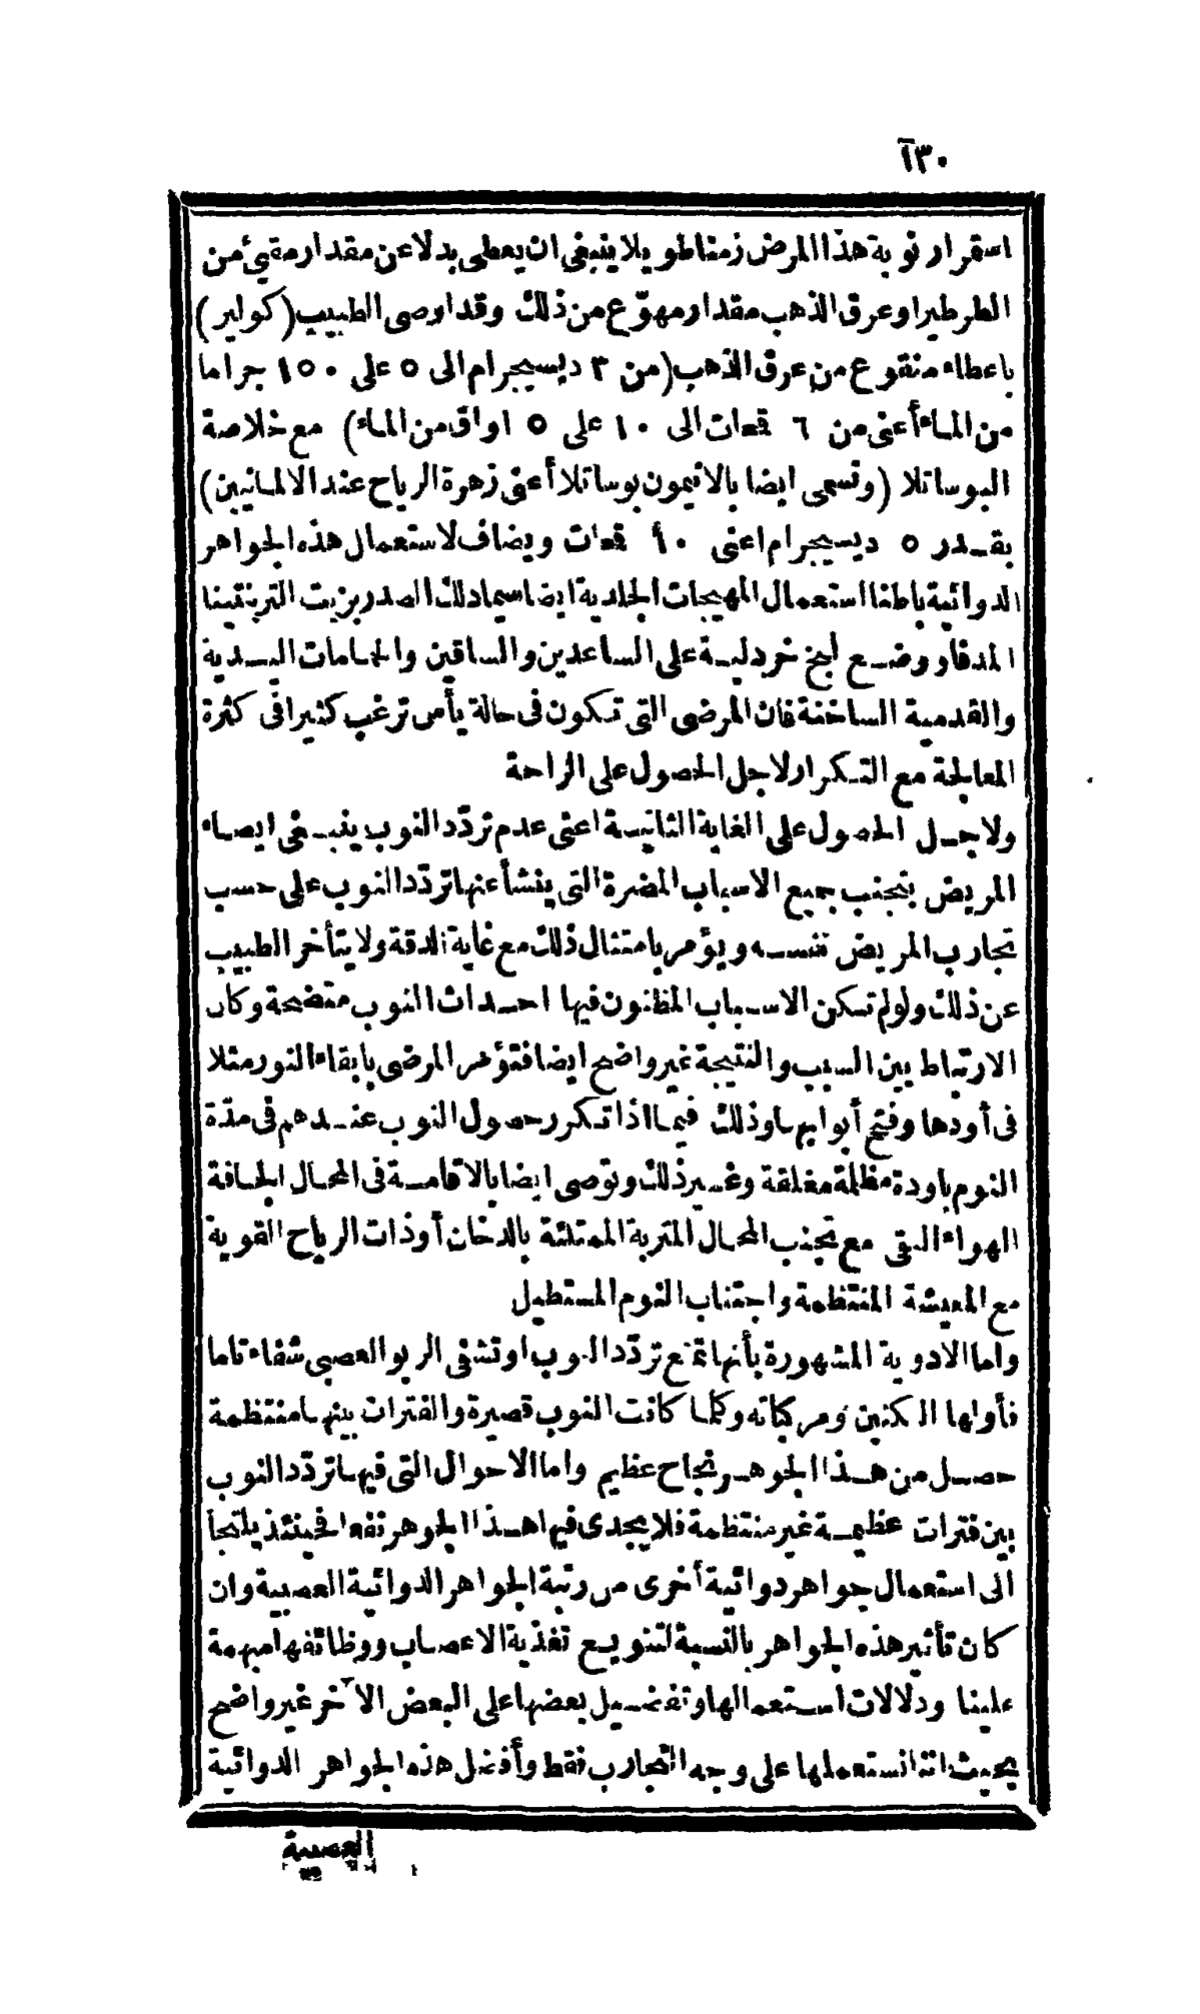 ١٣٠
استمرار نوبة هذا المرض زمنا طويلا ينبغى ان يعطى بدلا عن مقدار مقيئ من
الطرطير او عرق الذهب مقدار مهوّع من ذلك وقد اوصى الطبيب (كولير)
باعطاء منقوع من عرق الذهب (من ٣ ديسيجرام الى ٥ على ١٥٠ جراما
من الماء أعنى من ٦ قمحات الى ١٠ على ٥ اواق من الماء) مع خلاصة
البوساتلا (وتسمى ايضا بالانيمون بوساتلا أعنى زهرة الرياح عند الالمانيين)
بقدر ٥ ديسيجرام اعنى ١٠ قمحات ويضاف لاستعمال هذه الجواهر
الدوائية باطنا استعمال المهيجات الجلدية ايضا سيما دلك الصدر بزيت التربنتينا
المدفا ووضع لبخ خردلية على الساعدين والساقين والحمامات اليدية
والقدمية الساخنة فان المرضى التى تكون فى حالة يأس ترغب كثيرا فى كثرة
المعالجة مع التكرار لاجل الحصول على الراحة
ولاجل الحصول على الغاية الثانية اعنى عدم تردّد النوب ينبغى ايصاء
المريض بتجنب جميع الاسباب المضرة التى ينشأ عنها تردّد النوب على حسب
تجارب المريض نفسه ويؤمر بامتثال ذلك مع غاية الدقة ولا يتأخر الطبيب
عن ذلك ولو لم تكن الاسباب المظنون فيها احداث النوب متضحة وكان
الارتباط بين السبب والنتيجة غير واضح ايضا فتؤمر المرضى بابقاء النور مثلا
فى أودها وفتح أبوابها وذلك فيما اذا تكرر حصول النوب عندهم فى مدّة
النوم باودة مظلمة مغلقة وغير ذلك وتوصى ايضا بالاقامة فى المحال الجافة
الهواء النقى مع تجنب المحال المتربة الممتلئة بالدخان أو ذات الرياح القوية
مع المعيشة المنتظمة واجتناب النوم المستطيل
واما الادوية المشهورة بأنها تمنع تردّد النوب او تشفى الربو العصبى شفاء تاما
فأولها الكنين ومركباته وكلما كانت النوب قصيرة والفترات بينها منتظمة
حصل من هذا الجوهر نجاح عظيم واما الاحوال التى فيها تردّد النوب
بين فترات عظيمة غير منتظمة فلا يجدى فيها هذا الجوهر نفعا فحينئذ يلتجأ
الى استعمال جواهر دوائية أخرى من رتبة الجواهر الدوائية العصبية وان
كان تأثير هذه الجواهر بالنسبة لتنويع تغذية الاعصاب ووظائفها مبهمة
علينا ودلالات استعمالها وتفضيل بعضها على البعض الآخر غير واضح
بحيث اننا نستعملها على وجه التجارب فقط وأفضل هذه الجواهر الدوائية
العصبية